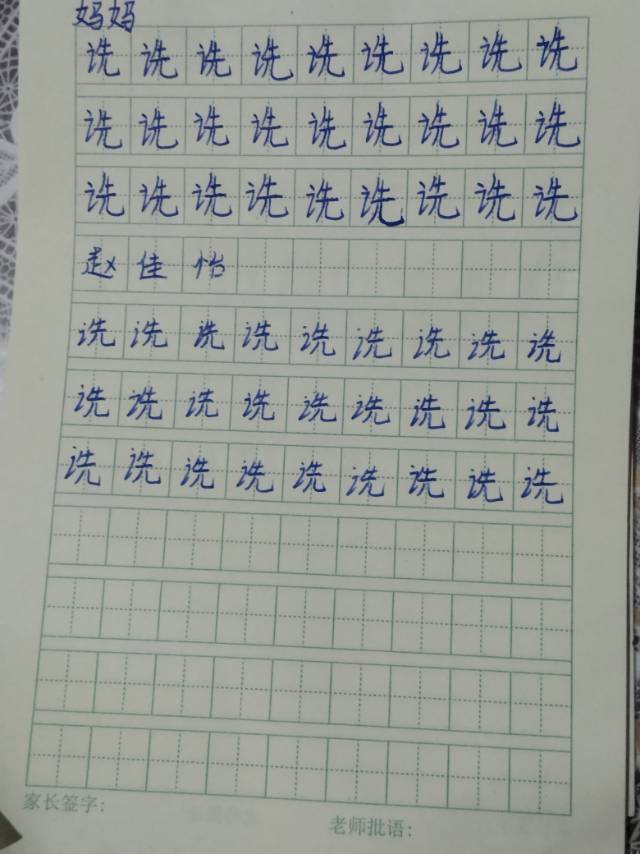 妈妈
诜诜诜诜诜诜诜诜诜
诜诜诜诜诜诜诜诜诜
诜诜诜诜诜诜诜诜诜
赵佳怡
诜诜诜诜诜诜诜诜诜
诜诜诜诜诜诜诜诜诜
诜诜诜诜诜诜诜诜诜
家长签字：
老师批语：